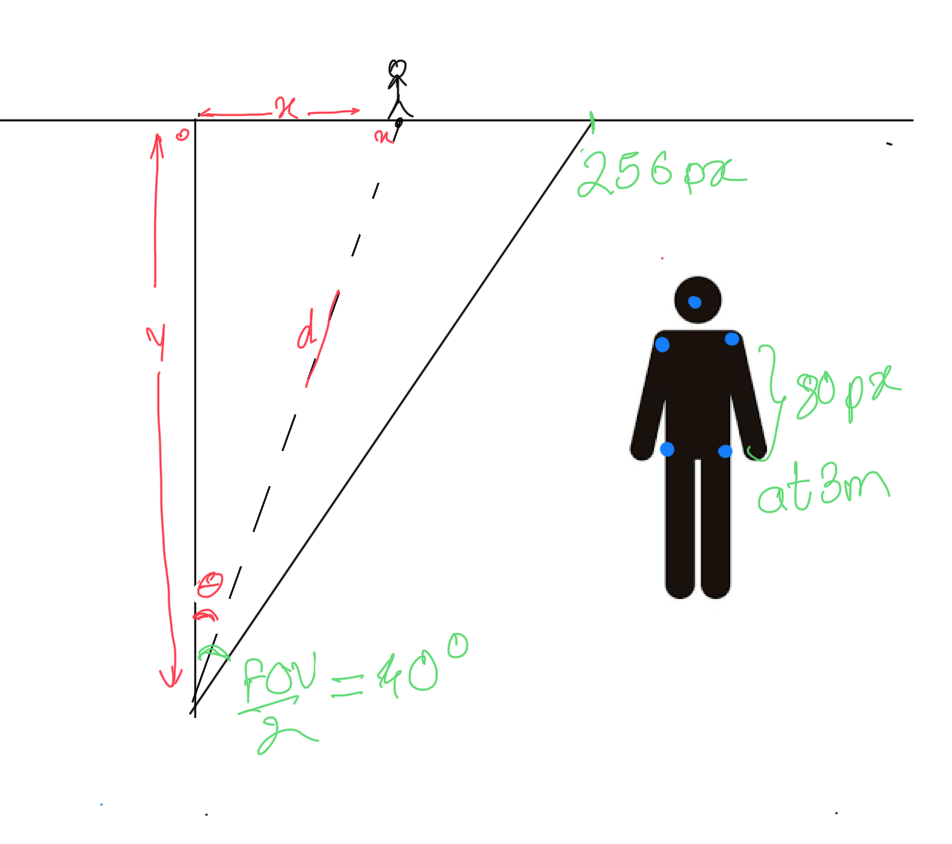 x
0
x
256px
y
d
80px
at 3m
θ
FOV/2 = 40°